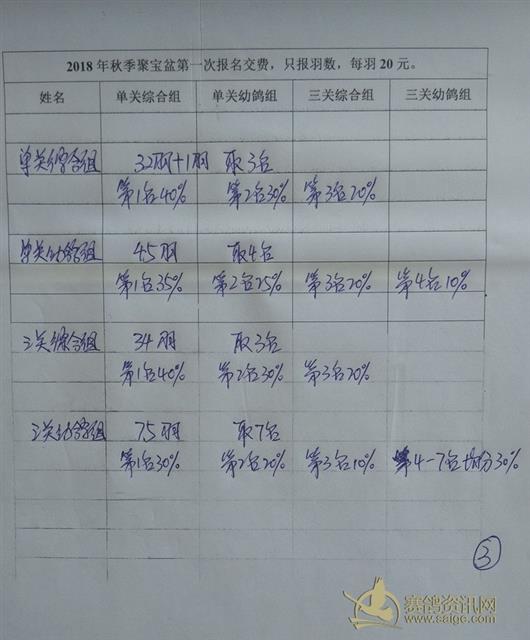 2018 年秋季聚宝盆第一次报名交费，只报羽数，每羽 20 元。
姓名 单关综合组 单关幼鸽组 三关综合组 三关幼鸽组
单关综合组 32羽+1羽 取3名
第1名40% 第2名30% 第3名20%
单关幼鸽组 45羽 取4名
第1名35% 第2名25% 第3名20% 第4名10%
三关综合组 34羽 取3名
第1名40% 第2名30% 第3名20%
三关幼鸽组 75羽 取7名
第1名30% 第2名20% 第3名10% 第4-7名均分30%
③
赛鸽资讯网
www.saige.com